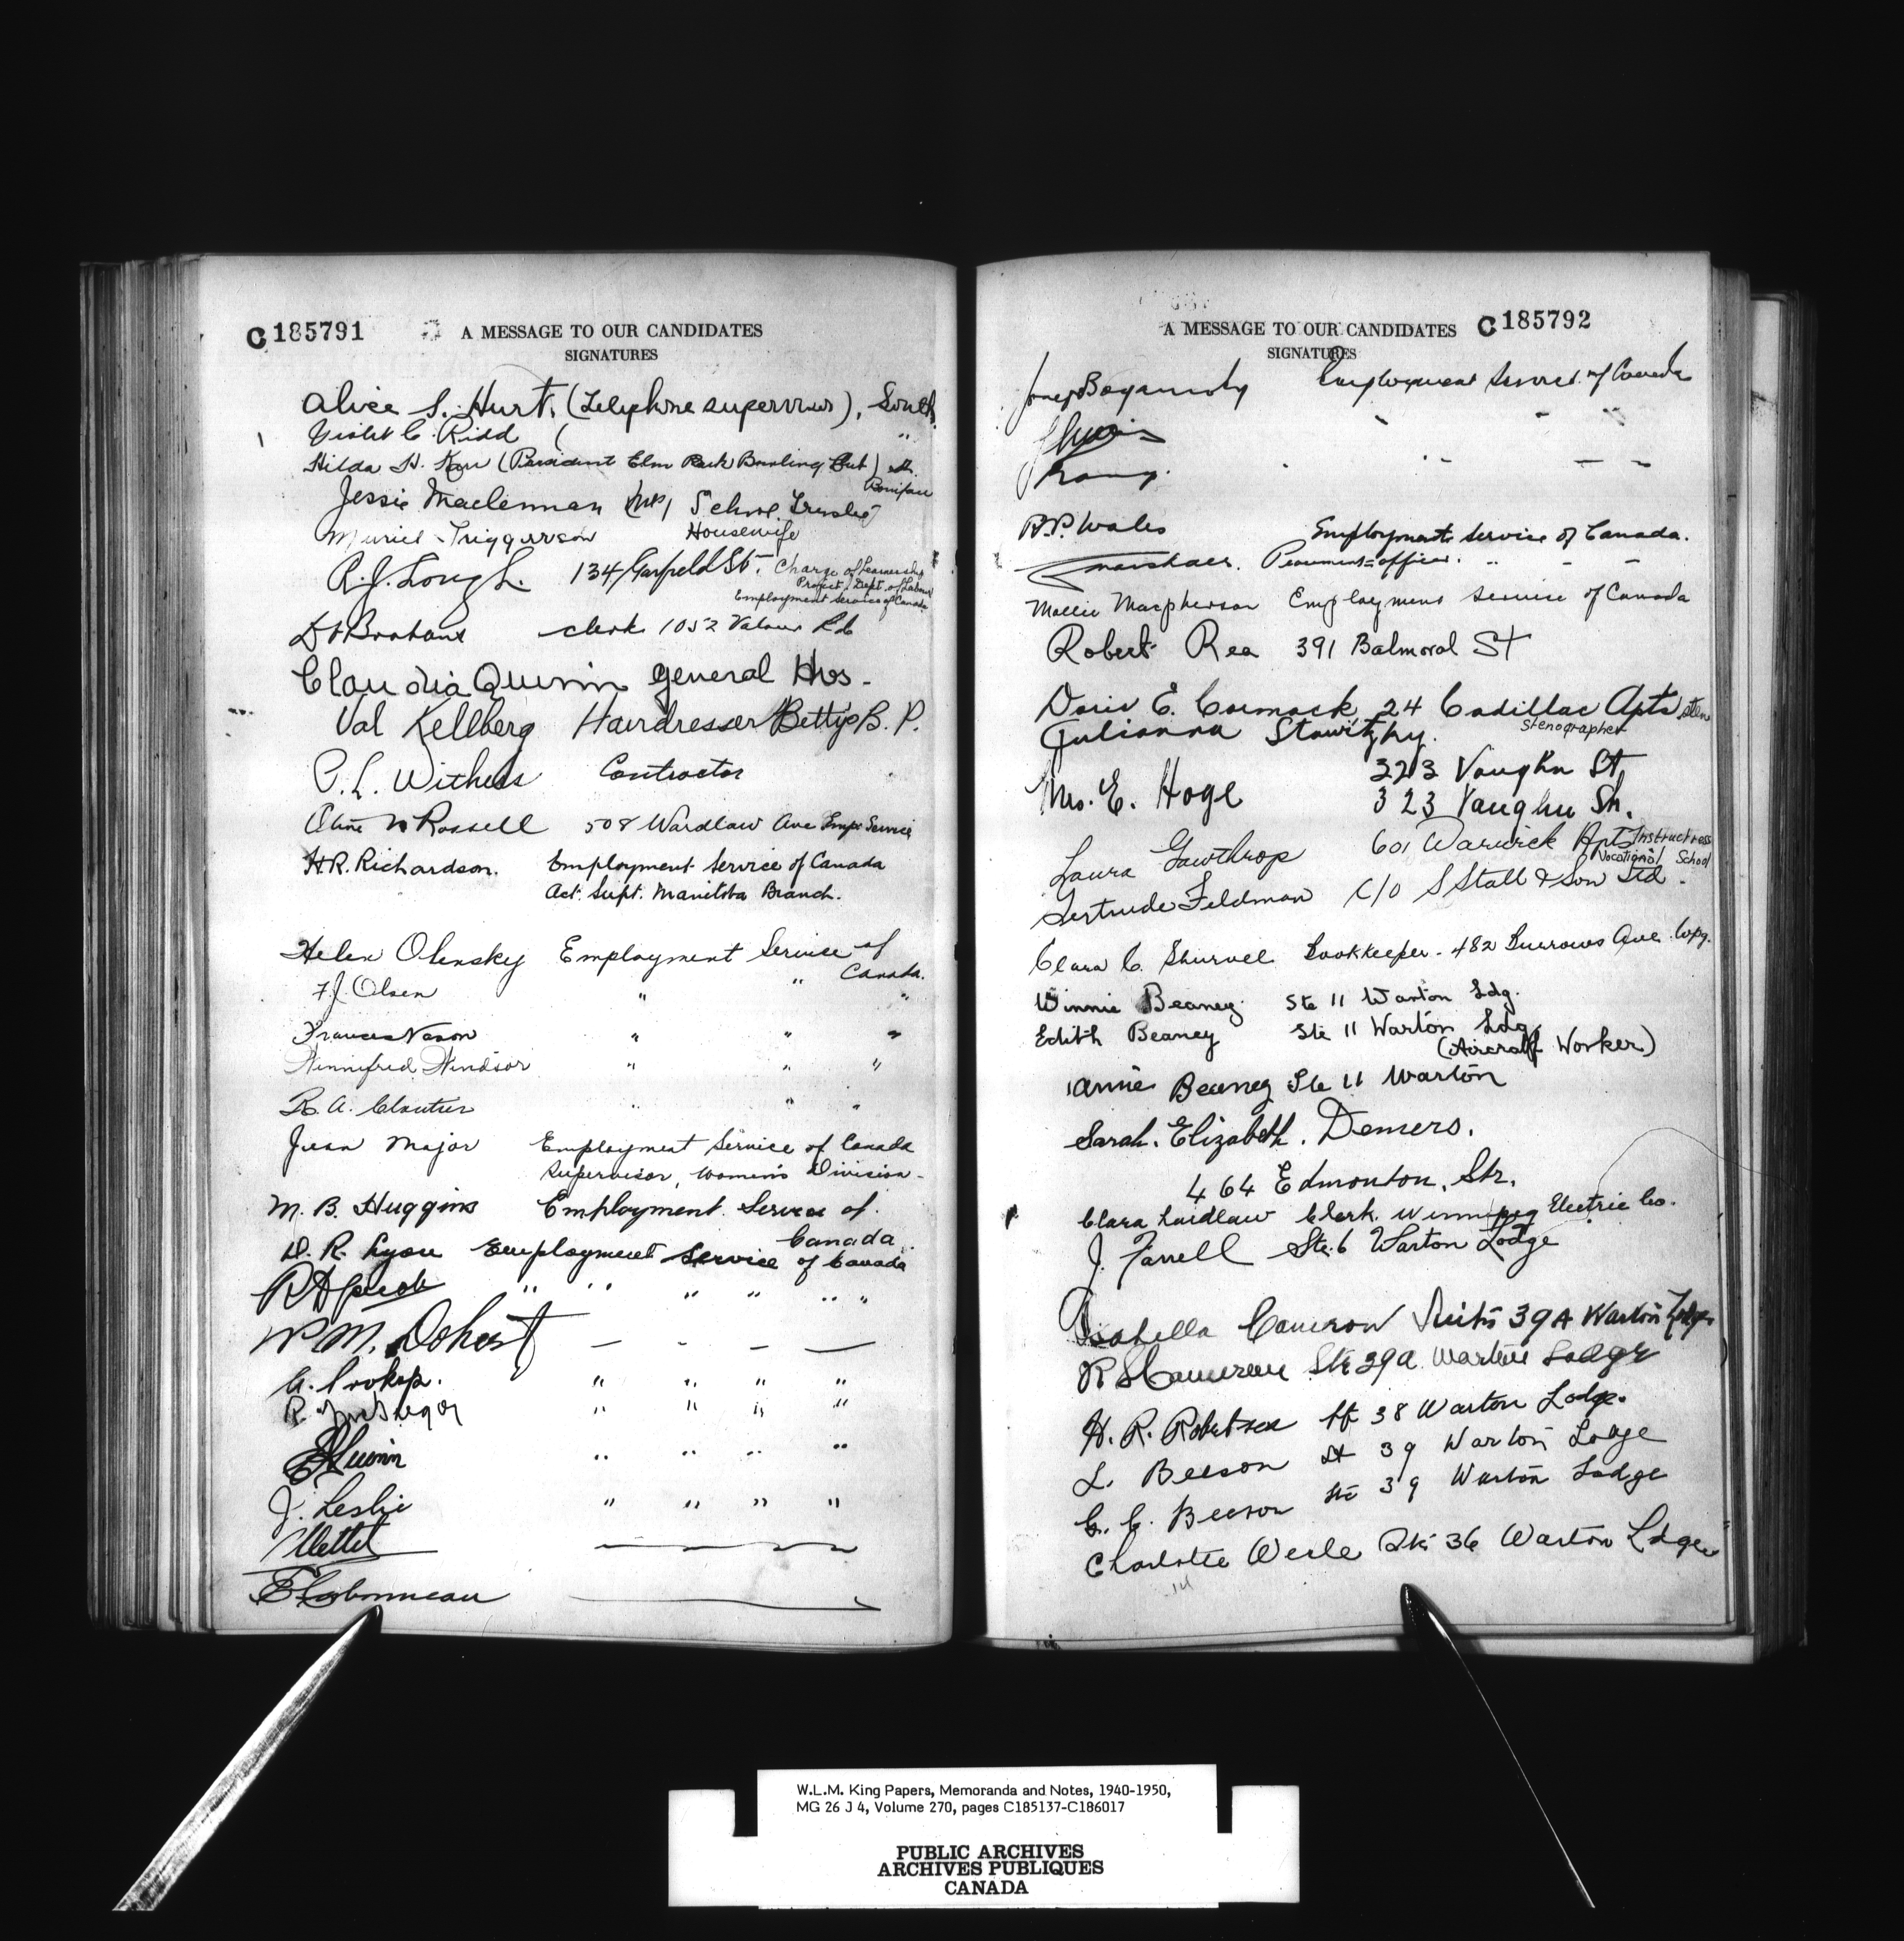 C185791
A MESSAGE TO OUR CANDIDATES
SIGNATURES
Alice S. Hurt, (Telephone supervisor), South
Violet C. Ridd ( "
Hilda H. (President Elm Park Bowling Club) St.
Boniface
Jessie Maclennan (Mrs) School Trustee
Muriel Triggerson Housewife
R.J. Lough. 134 Garfield St. Charge of Learnership
Project, Dept. of Labour
Employment Service of Canada
clerk 1052 Valour Rd
Claudia Quinn General Hos.
Val Kellberg Hairdresser Bettys B. P.
P.L. Withers Contractor
Rossell 508 Wardlaw Ave Emp. Service
H.R. Richardson. Employment Service of Canada
Act. Supt. Manitoba Branch.
Helen Olensky Employment Service of
Canada.
F.J. Olsen " " "
Frances Nason " " "
Winnifred Windsor " " "
R. A. Cloutier " " "
Jean Major Employment Service of Canada
Supervisor, Women's Division.
M. B. Huggins Employment Service of
Canada.
D. R. Lyon Employment Service of Canada
R H Jacob " " " " " "
M. Dohert — — — —
A. Prokop. " " " "
R. McGregor " " " "
" " " "
J. Leslie " " " "
C185792
A MESSAGE TO OUR CANDIDATES
SIGNATURES
Employment Service of Canada
R.P. Wales Employment Service of Canada.
Marshall. " - -
Mollie Macpherson Employment Service of Canada
Robert Rea 391 Balmoral ST
Doris E. Cormack 24 Cadillac Apts Sten
Julianna Stenographer
323 Vaughn St
Mrs. E. Hoge 323 Vaughn St.
Laura Gawthrop 601 Warwick Apts Instructress
Vocational School
Gertrude Feldman C/O S Stall & Son Ltd.
Clara C. Shurvell Bookkeeper - 482 Burrows Ave. Wpg.
Winnie Beaney Ste 11 Warton Ldg.
Edith Beaney Ste 11 Warton Ldg
(Aircraft Worker)
Annie Beaney Ste 11 Warton
Sarah. Elizabeth. Demers.
464 Edmonton. Str.
Clara Laidlaw Clerk. Winnipeg Electric Co.
J. Farrell Ste. 6 Warton Lodge
Isabella Cameron Suite 39A Warton Lodge
R S Cameron Ste 39a Warton Lodge
H. R. Robertson St 38 Warton Lodge.
L. Beeson St 39 Warton Lodge
G. C. Beeson Ste 39 Warton Lodge
Charlotte Werle Ste 36 Warton Ldge
W.L.M. King Papers, Memoranda and Notes, 1940-1950,
MG 26 J 4, Volume 270, pages C185137-C186017
PUBLIC ARCHIVES
ARCHIVES PUBLIQUES
CANADA